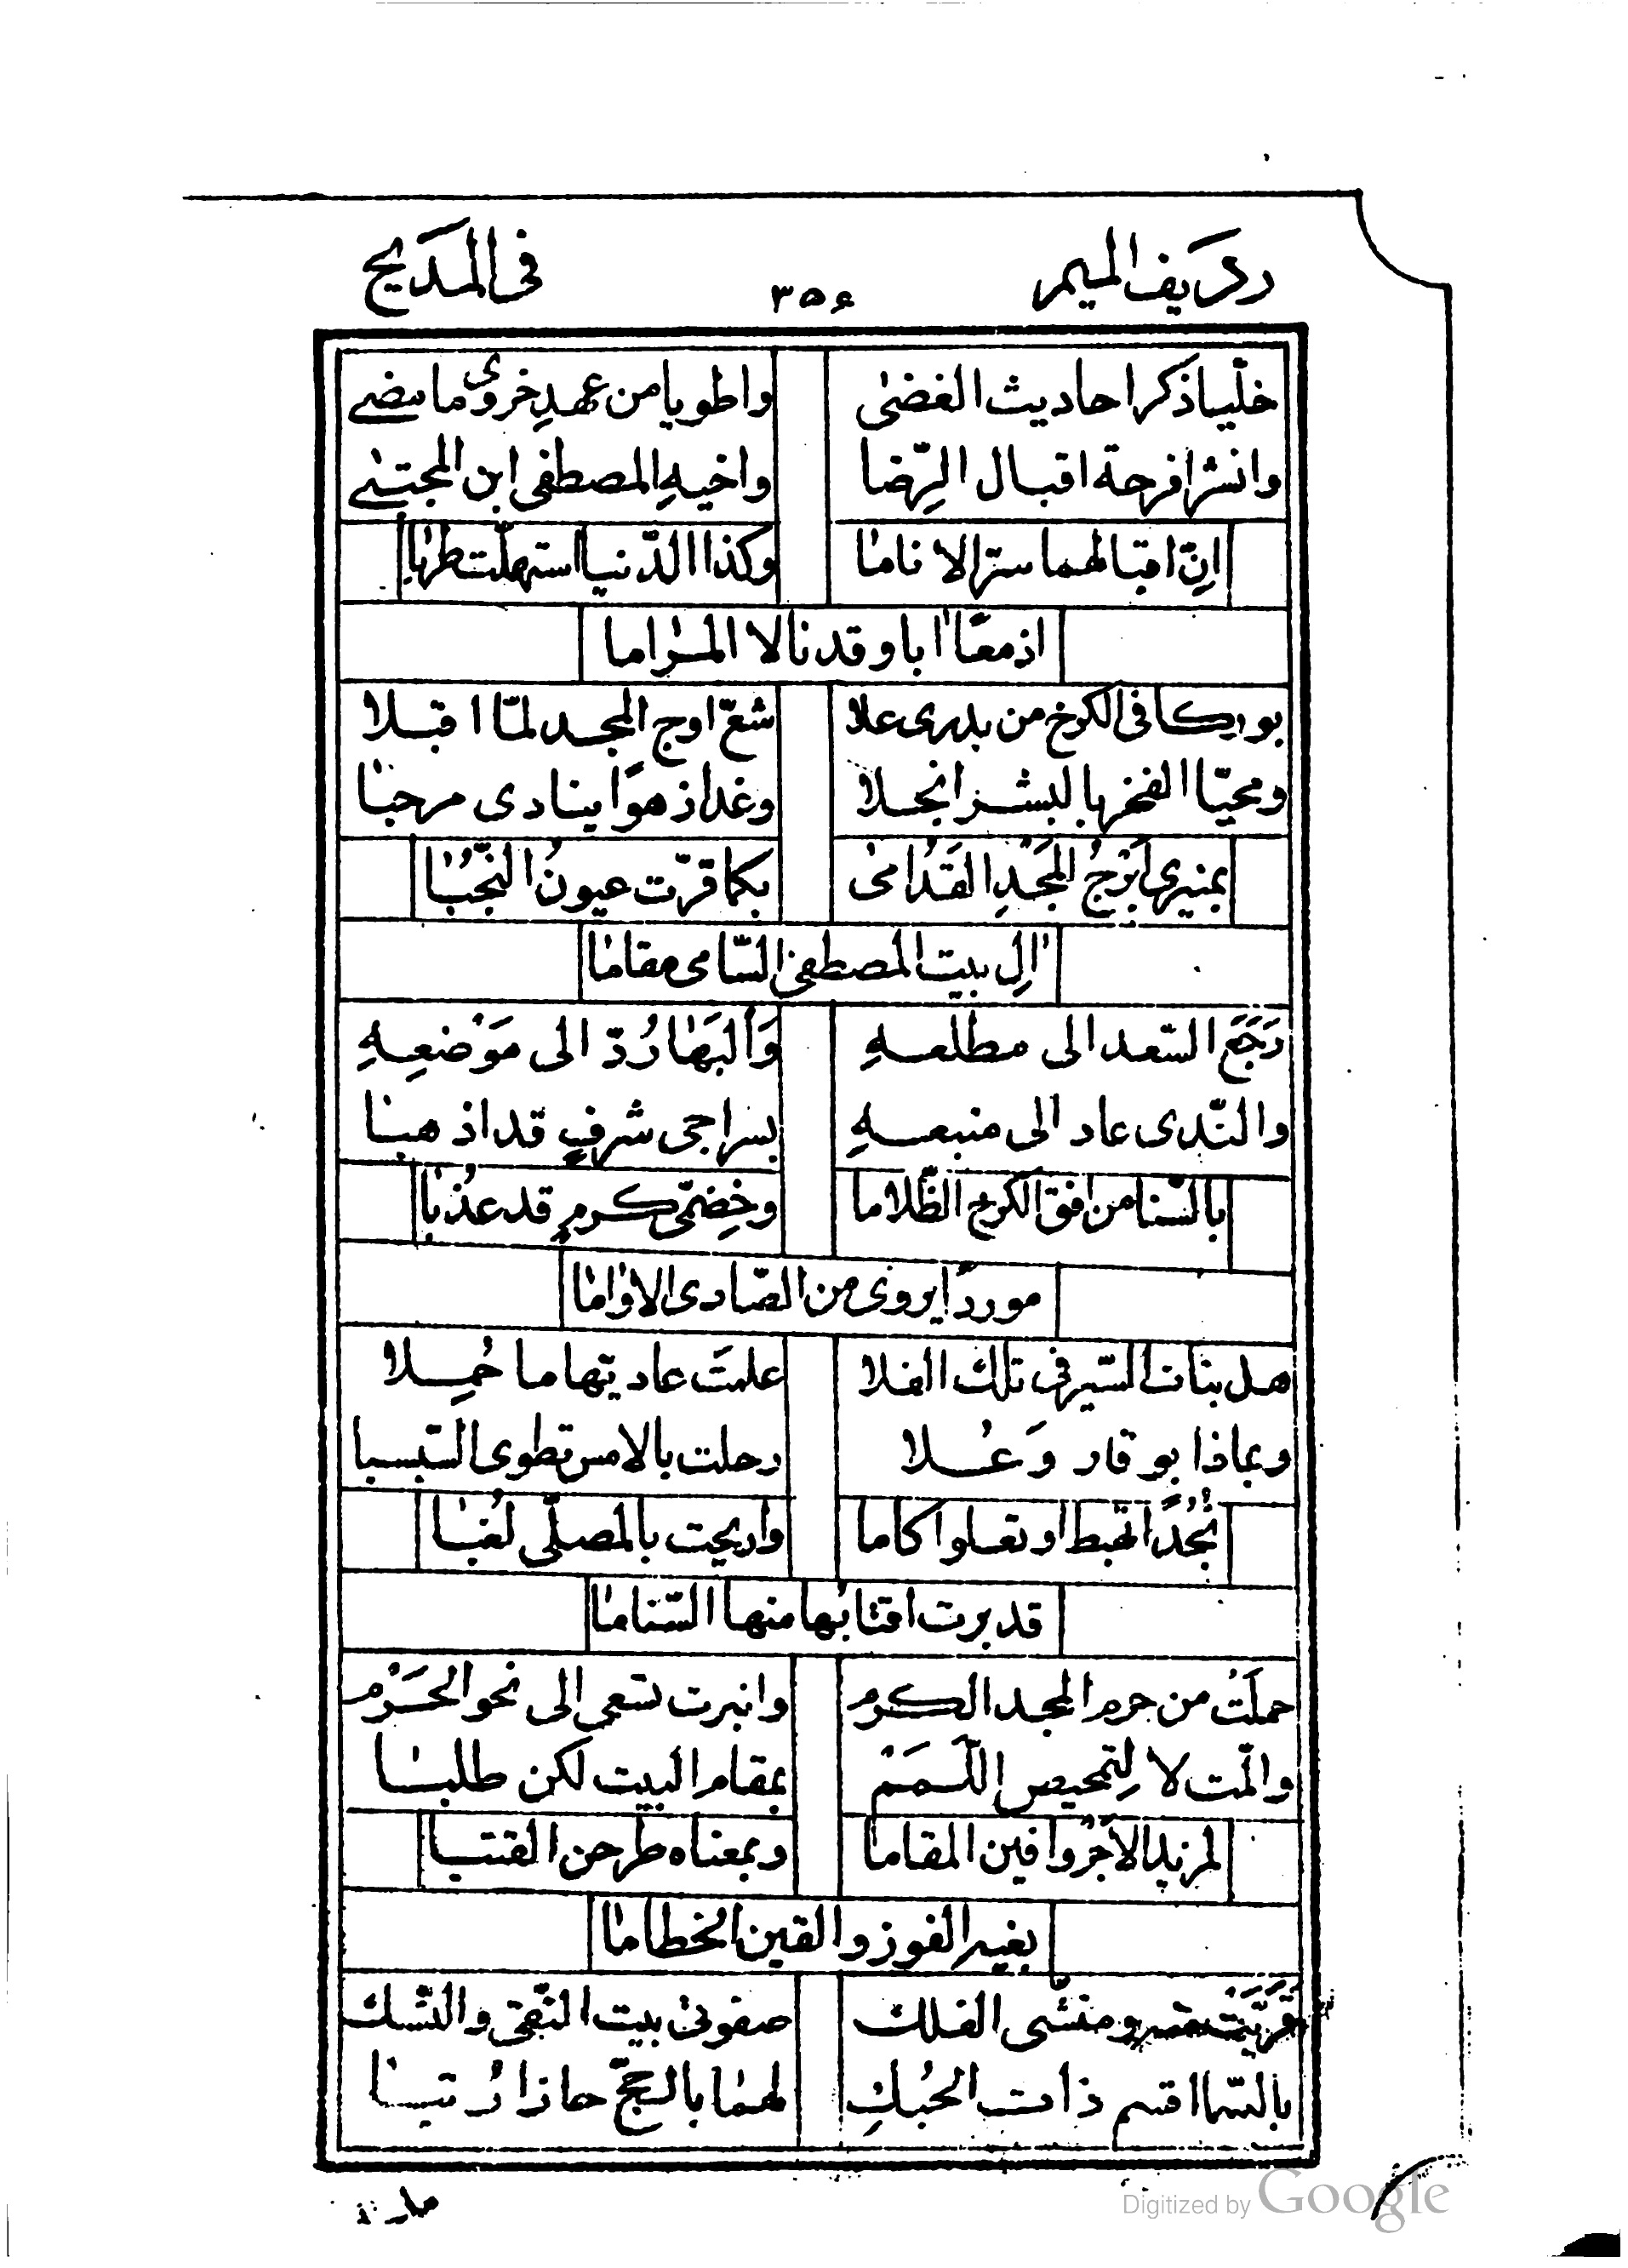 رديف الميم ٣٥٤ في المديح
خلّيا ذكر احاديث الغضى واطويا من عهدِ خروى ما مضى
وانشرا فرحة اقبال الرّضا واخيهِ المصطفى ابن المجتبى
انّ اقبالهما سرّ الاناما وكذا الدّنيا استهلّت طربا
اذ معًا ابا وقد نالا المراما
بوركا في الكرخ من بدرى علا شعّ اوج المجد لمّا اقبلا
ومحيّا الفخر بالبشر انجلا وغدا زهوًا ينادى مرحبا
بمنيرى ابْرُجُ المَجْدِ القُدامى بكما قرّت عيونُ النُّجُبا
الِ بيت المصطفى السّامى مقاما
رَجَعَ السّعد الى مطلعهِ وَالبَها رُدّ الى مَوْضعِهِ
والنّدى عاد الى منبعهِ بسراجى شرفٍ قد اذهبا
بالسّنا من افق الكرخ الظّلاما وخِضمّى كرمٍ قد عذُبا
موردًا يروى من الصّادى الاواما
هل بنات السّير فى تلك الفلا علمتَ عاديتها ما حُمِلا
وبماذا بوقار وَعُلا رحلت بالامس تطوى السّبسبا
نُجُدًا تهبط او تعلو اكاما واريحت بالمصلّى لُغبا
قد برت اقتابُها منها السّناما
حملَتْ من حرم المجد الكرم وانبرت تسعى الى نحو الحَرَم
والمّت لا لِتمحيص اللَّمَمْ بمقام البيت لكن طلبا
لمزيد الأَجْرُ وافين المقاما وبمعناه طرحن القتبا
بغير الفوز والقين الخطاما
ومنشى الفلك صفوتى بيت التّقى والنّسك
بالسّما اقسم ذات الحُبُكِ لهما بالحجّ حازا رُتبا